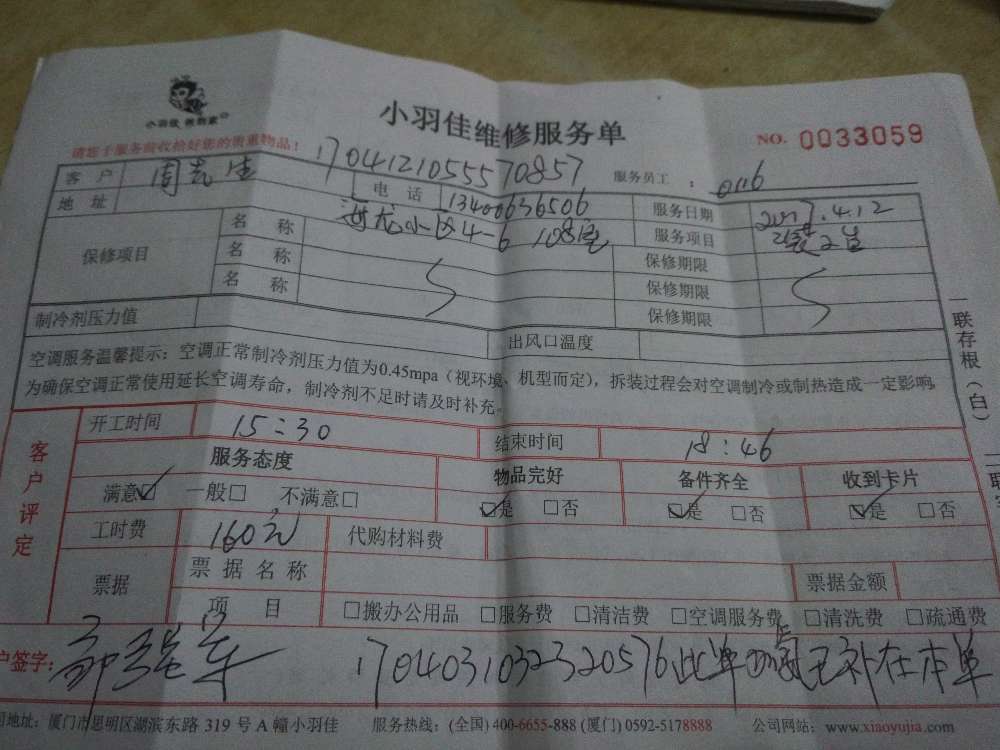 小羽佳 微到家
小羽佳维修服务单
NO. 0033059
请您于服务前收拾好您的贵重物品！
1704121055570857
服务员工：0116
客户 周先生 电话 13400636506 服务日期 2017.4.12
地址 海龙小区4-6 108室 服务项目 装2台
保修项目 名称 保修期限
名称 保修期限
名称 保修期限
制冷剂压力值 出风口温度
空调服务温馨提示：空调正常制冷剂压力值为0.45mpa（视环境、机型而定），拆装过程会对空调制冷或制热造成一定影响，
为确保空调正常使用延长空调寿命，制冷剂不足时请及时补充。
一联存根（白）
二联
客户评定
开工时间 15:30 结束时间 18:46
服务态度 物品完好 备件齐全 收到卡片
满意☑ 一般□ 不满意□ ☑是 □否 ☑是 □否 ☑是 □否
工时费 160元 代购材料费
票据 票据名称 票据金额
项目 □搬办公用品 □服务费 □清洁费 □空调服务费 □清洗费 □疏通费
户签字： 17040310323320576此单 已补在本单
司地址：厦门市思明区湖滨东路 319 号 A 幢小羽佳 服务热线：(全国) 400-6655-888 (厦门) 0592-5178888 公司网站：www.xiaoyujia.com